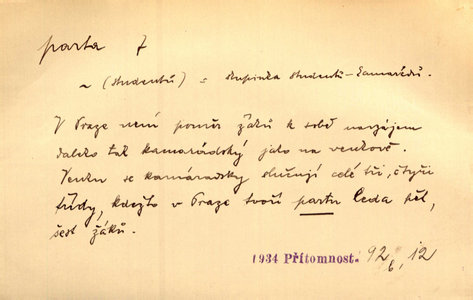 parta 7
~ (studentů) = skupinka studentů-kamarádů.
V Praze není poměr žáků k sobě navzájem
daleko tak kamarádský jako na venkově.
Venku se kamarádsky slučují celé tři, čtyři
třídy, kdežto v Praze tvoří partu leda pět,
šest žáků.
1934 Přítomnost. 92, 12